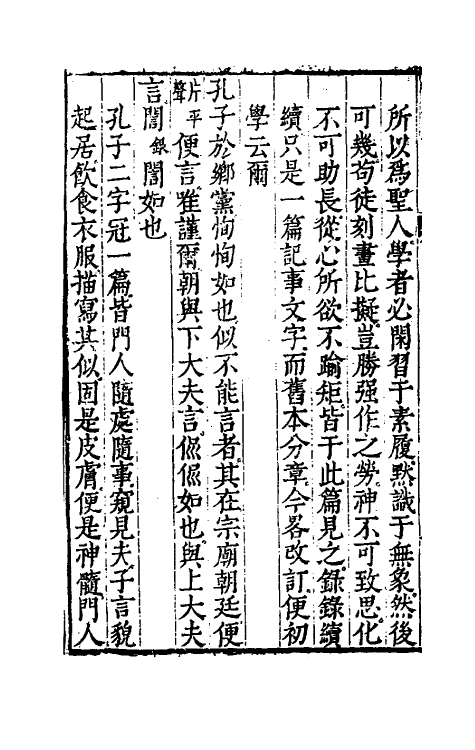 所以爲聖人學者必閑習于素履默識于無象然後
可幾茍徒刻畫比擬豈勝强作之勞神不可致思化
不可助長從心所欲不踰矩皆于此篇見之錄錄續
續只是一篇記事文字而舊本分章今畧改訂便初
學云爾
孔子於鄉黨恂恂如也似不能言者其在宗廟朝廷便
片平聲便言唯謹爾朝與下大夫言侃侃如也與上大夫
言誾銀誾如也
孔子二字冠一篇皆門人隨處隨事窺見夫子言貌
起居飲食衣服描寫其似固是皮膚便是神髓門人